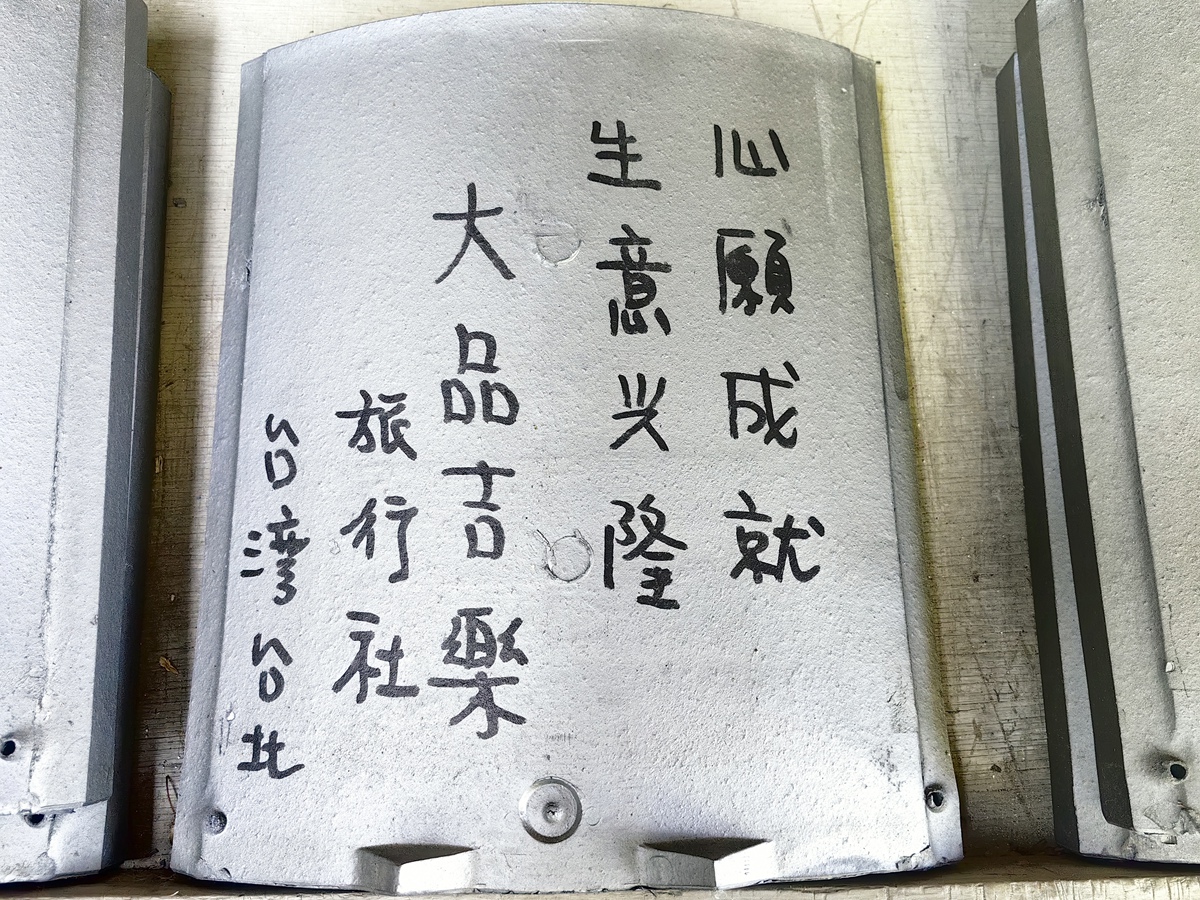 心願成就
生意兴隆
大品吉樂
旅行社
台湾台北